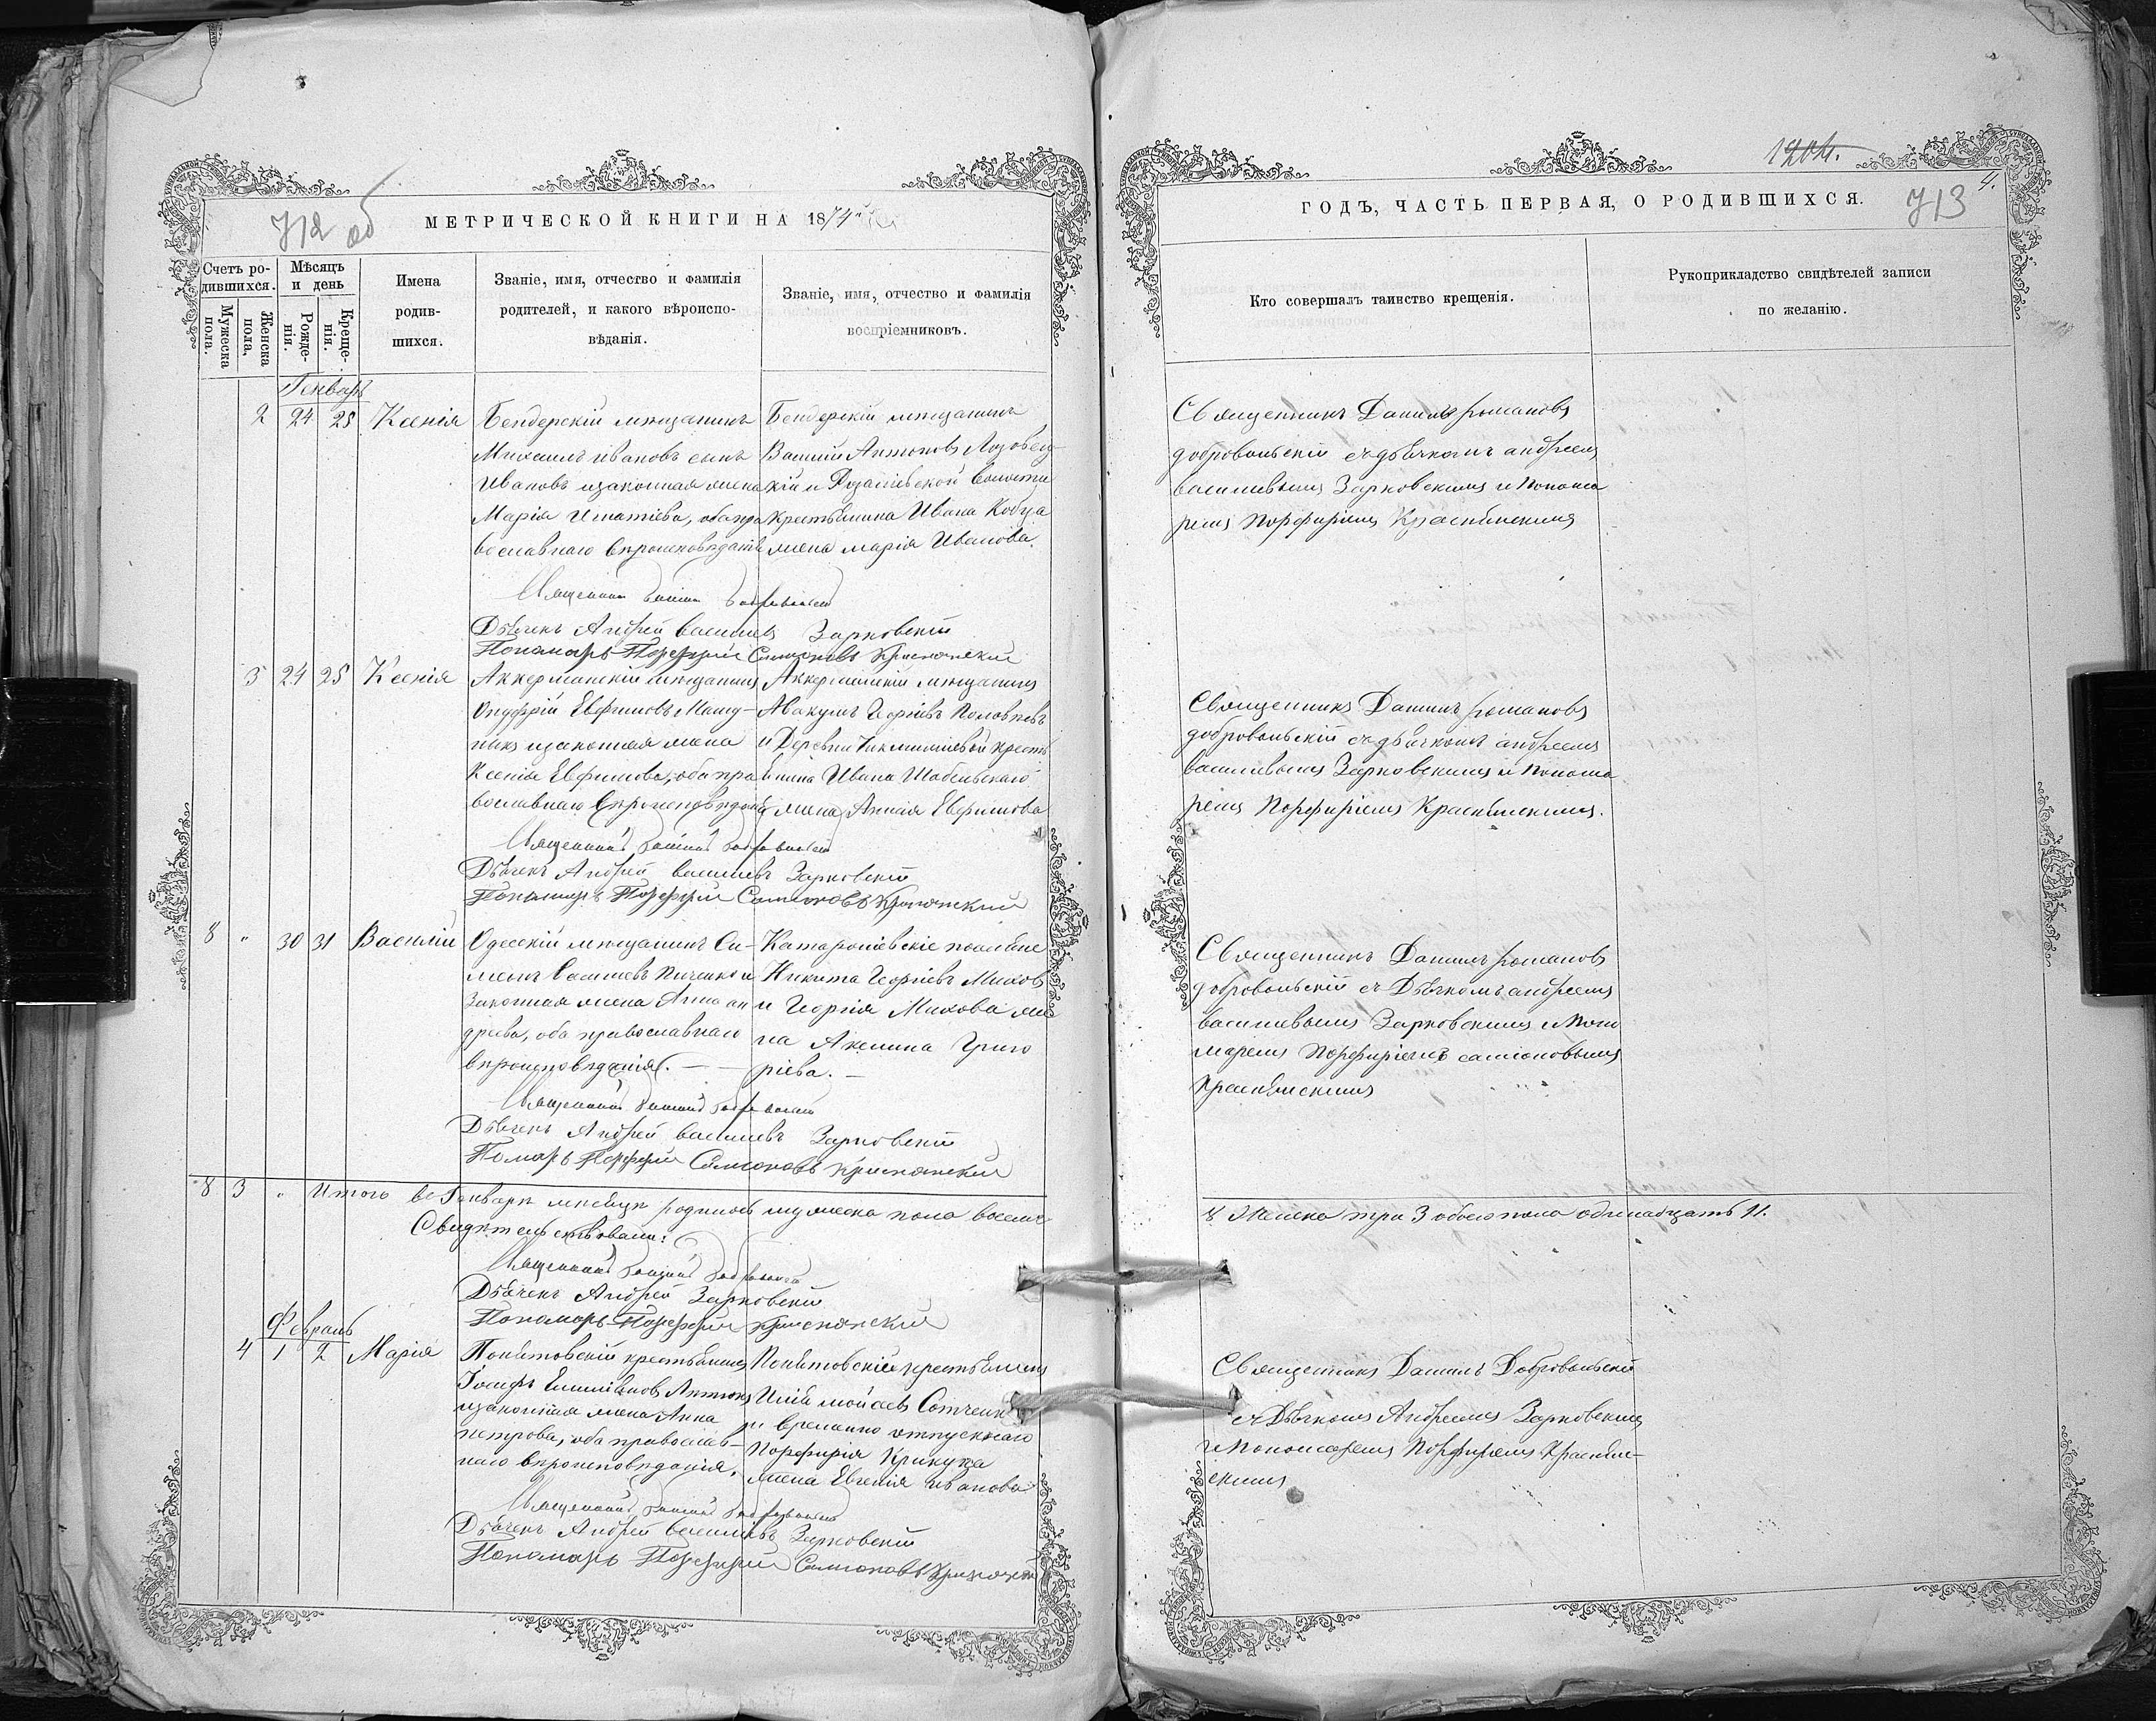 712 об
МЕТРИЧЕСКОЙ КНИГИ НА 1874
Счетъ ро-
дившихся.
Мужеска
пола.
Женска
пола,
Мѣсяцъ
и день
Рожде-
нія.
Креще-
нія.
Имена
родив-
шихся.
Званіе, имя, отчество и фамилія
родителей, и какого вѣроиспо-
вѣданія.
Званіе, имя, отчество и фамилія
воспріемниковъ.
Генварь
2 24 25 Ксенія
Бендерскій мѣщанинъ
Михаилъ Ивановъ сынъ
Ивановъ изаконная жена
Марія Игнатіева, оба пра
вославнаго вѣроисповѣданія
Бендерскій мѣщанинъ
Василій Антоновъ Лозовец
кій и волости
крестьянина Ивана
жена марія Иванова.
Священникъ Даніилъ Добровольскій
Дьячекъ Андрей васильевъ Зарковскій
Пономарь Порфирій Самсоновъ Краснянскій
3 24 25 Ксенія
Аккерманскій мѣщанинъ
Онуфрій Евфимовъ
изаконная жена
Ксенія Евфимова, оба пра
вославнаго вѣроисповѣданія
Аккерманскій мѣщанинъ
Авакумъ Георгіевъ
и Деревни кресть
янина Ивана Шабельскаго
жена, Анна Евфимова
Священникъ Даніилъ Добровольскій
Дьячекъ Андрей васильевъ Зарковскій
Пономарь Порфирій Самсоновъ Краснянскій
8 " 30 31 Василій
Одесскій мѣщанинъ Си-
менъ Васильевъ и
Законная жена Анна ан
дреева, оба православнаго
вѣроисповѣданія. — —
поселяне
Никита Георгіевъ Михов
и Георгія Михова же
на Акилина Григо
ріева. —
Священникъ Даніилъ Добровольскій
Дьячекъ Андрей васильевъ Зарковскій
Помарь Порфирій Самсоновъ Краснянскій
8 3 " Итого ве Генварѣ мѣсяцѣ родилось мужеска пола восемь
Свидѣтельствовали:
Священникъ Даніилъ Добровольскій
Дьячекъ Андрей Зарковскій
Пономарь Порфирій Краснянскій
Февраль
4 1 2 Марія
Понятовскій крестьянинъ
Іосифъ Антонов
изаконная жена Анна
петрова, оба православ-
наго вѣроисповѣданія.
Понятовскій крестьянинъ
Илія Сотченк
и временно отпускнаго
Порфирія
жена Евгенія иванова
Священникъ Даніилъ Добровольскій
Дьячекъ Андрей васильевъ Зарковскій
Пономарь Порфирій Самсоновъ Краснянскій
1204.
4.
713
ГОДЪ, ЧАСТЬ ПЕРВАЯ, О РОДИВШИХСЯ.
Кто совершалъ таинство крещенія.
Рукоприкладство свидѣтелей записи
по желанію.
Священникъ Даніилъ романовъ
добровольскій съ дьячкомъ андреемъ
василиевымъ Зарковскимъ и Понома
ремъ Порфиріемъ Краснянскимъ
Священникъ Даніилъ романовъ
добровольскій съ дьячкомъ андреемъ
василиевымъ Зарковскимъ и Понома
ремъ Порфиріемъ Краснянскимъ.
Священникъ Даніилъ романовъ
добровольскій съ Дьячкомъ андреемъ
василиевымъ Зарковскимъ и Поно
маремъ Порфиріемъ самсоновымъ
Краснянскимъ
8 Женска три 3 обоего пола одинадцать 11.
Священникъ Даніилъ Добровольскій
съ Дьячкомъ Андреемъ Зарковскимъ
и Пономаремъ Порфиріемъ Краснян-
скимъ